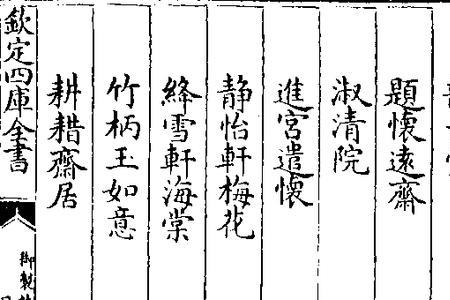 題懷遠齋
淑清院
進宫遣懷
静怡軒梅花
絳雪軒海棠
竹柄玉如意
耕耤齋居
欽定四庫全書
御製